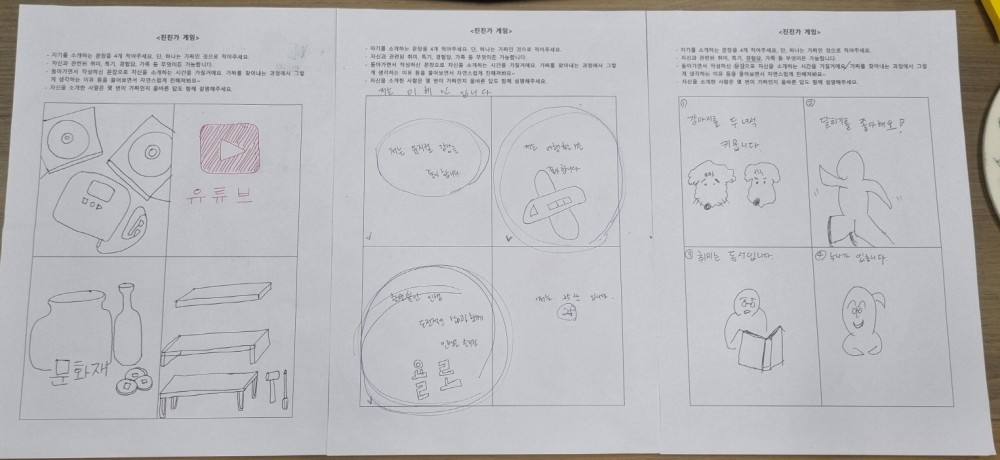 <진진가 게임>
- 자기를 소개하는 문장을 4개 적어주세요. 단, 하나는 가짜인 것으로 적어주세요.
- 자신과 관련된 취미, 특기, 경험담, 가족 등 무엇이든 가능합니다.
- 돌아가면서 작성하신 문장으로 자신을 소개하는 시간을 가질거에요. 가짜를 찾아내는 과정에서 그렇
게 생각하는 이유 등을 물어보면서 자연스럽게 친해져봐요~
- 자신을 소개한 사람은 몇 번이 가짜인지 올바른 답도 함께 설명해주세요.
유튜브
문화재
<진진가 게임>
- 자기를 소개하는 문장을 4개 적어주세요. 단, 하나는 가짜인 것으로 적어주세요.
- 자신과 관련된 취미, 특기, 경험담, 가족 등 무엇이든 가능합니다.
- 돌아가면서 작성하신 문장으로 자신을 소개하는 시간을 가질거에요. 가짜를 찾아내는 과정에서 그렇
게 생각하는 이유 등을 물어보면서 자연스럽게 친해져봐요~
- 자신을 소개한 사람은 몇 번이 가짜인지 올바른 답도 함께 설명해주세요.
저는 입니다
저는 뮤지컬
저는 여행
인생
욜로
저는 25살 입니다.
<진진가 게임>
- 자기를 소개하는 문장을 4개 적어주세요. 단, 하나는 가짜인 것으로 적어주세요.
- 자신과 관련된 취미, 특기, 경험담, 가족 등 무엇이든 가능합니다.
- 돌아가면서 작성하신 문장으로 자신을 소개하는 시간을 가질거에요. 가짜를 찾아내는 과정에서 그렇
게 생각하는 이유 등을 물어보면서 자연스럽게 친해져봐요~
- 자신을 소개한 사람은 몇 번이 가짜인지 올바른 답도 함께 설명해주세요.
① 강아지를 두 녀석
키웁니다
② 달리기를 좋아해요!
③ 취미는 독서입니다.
④ 있습니다